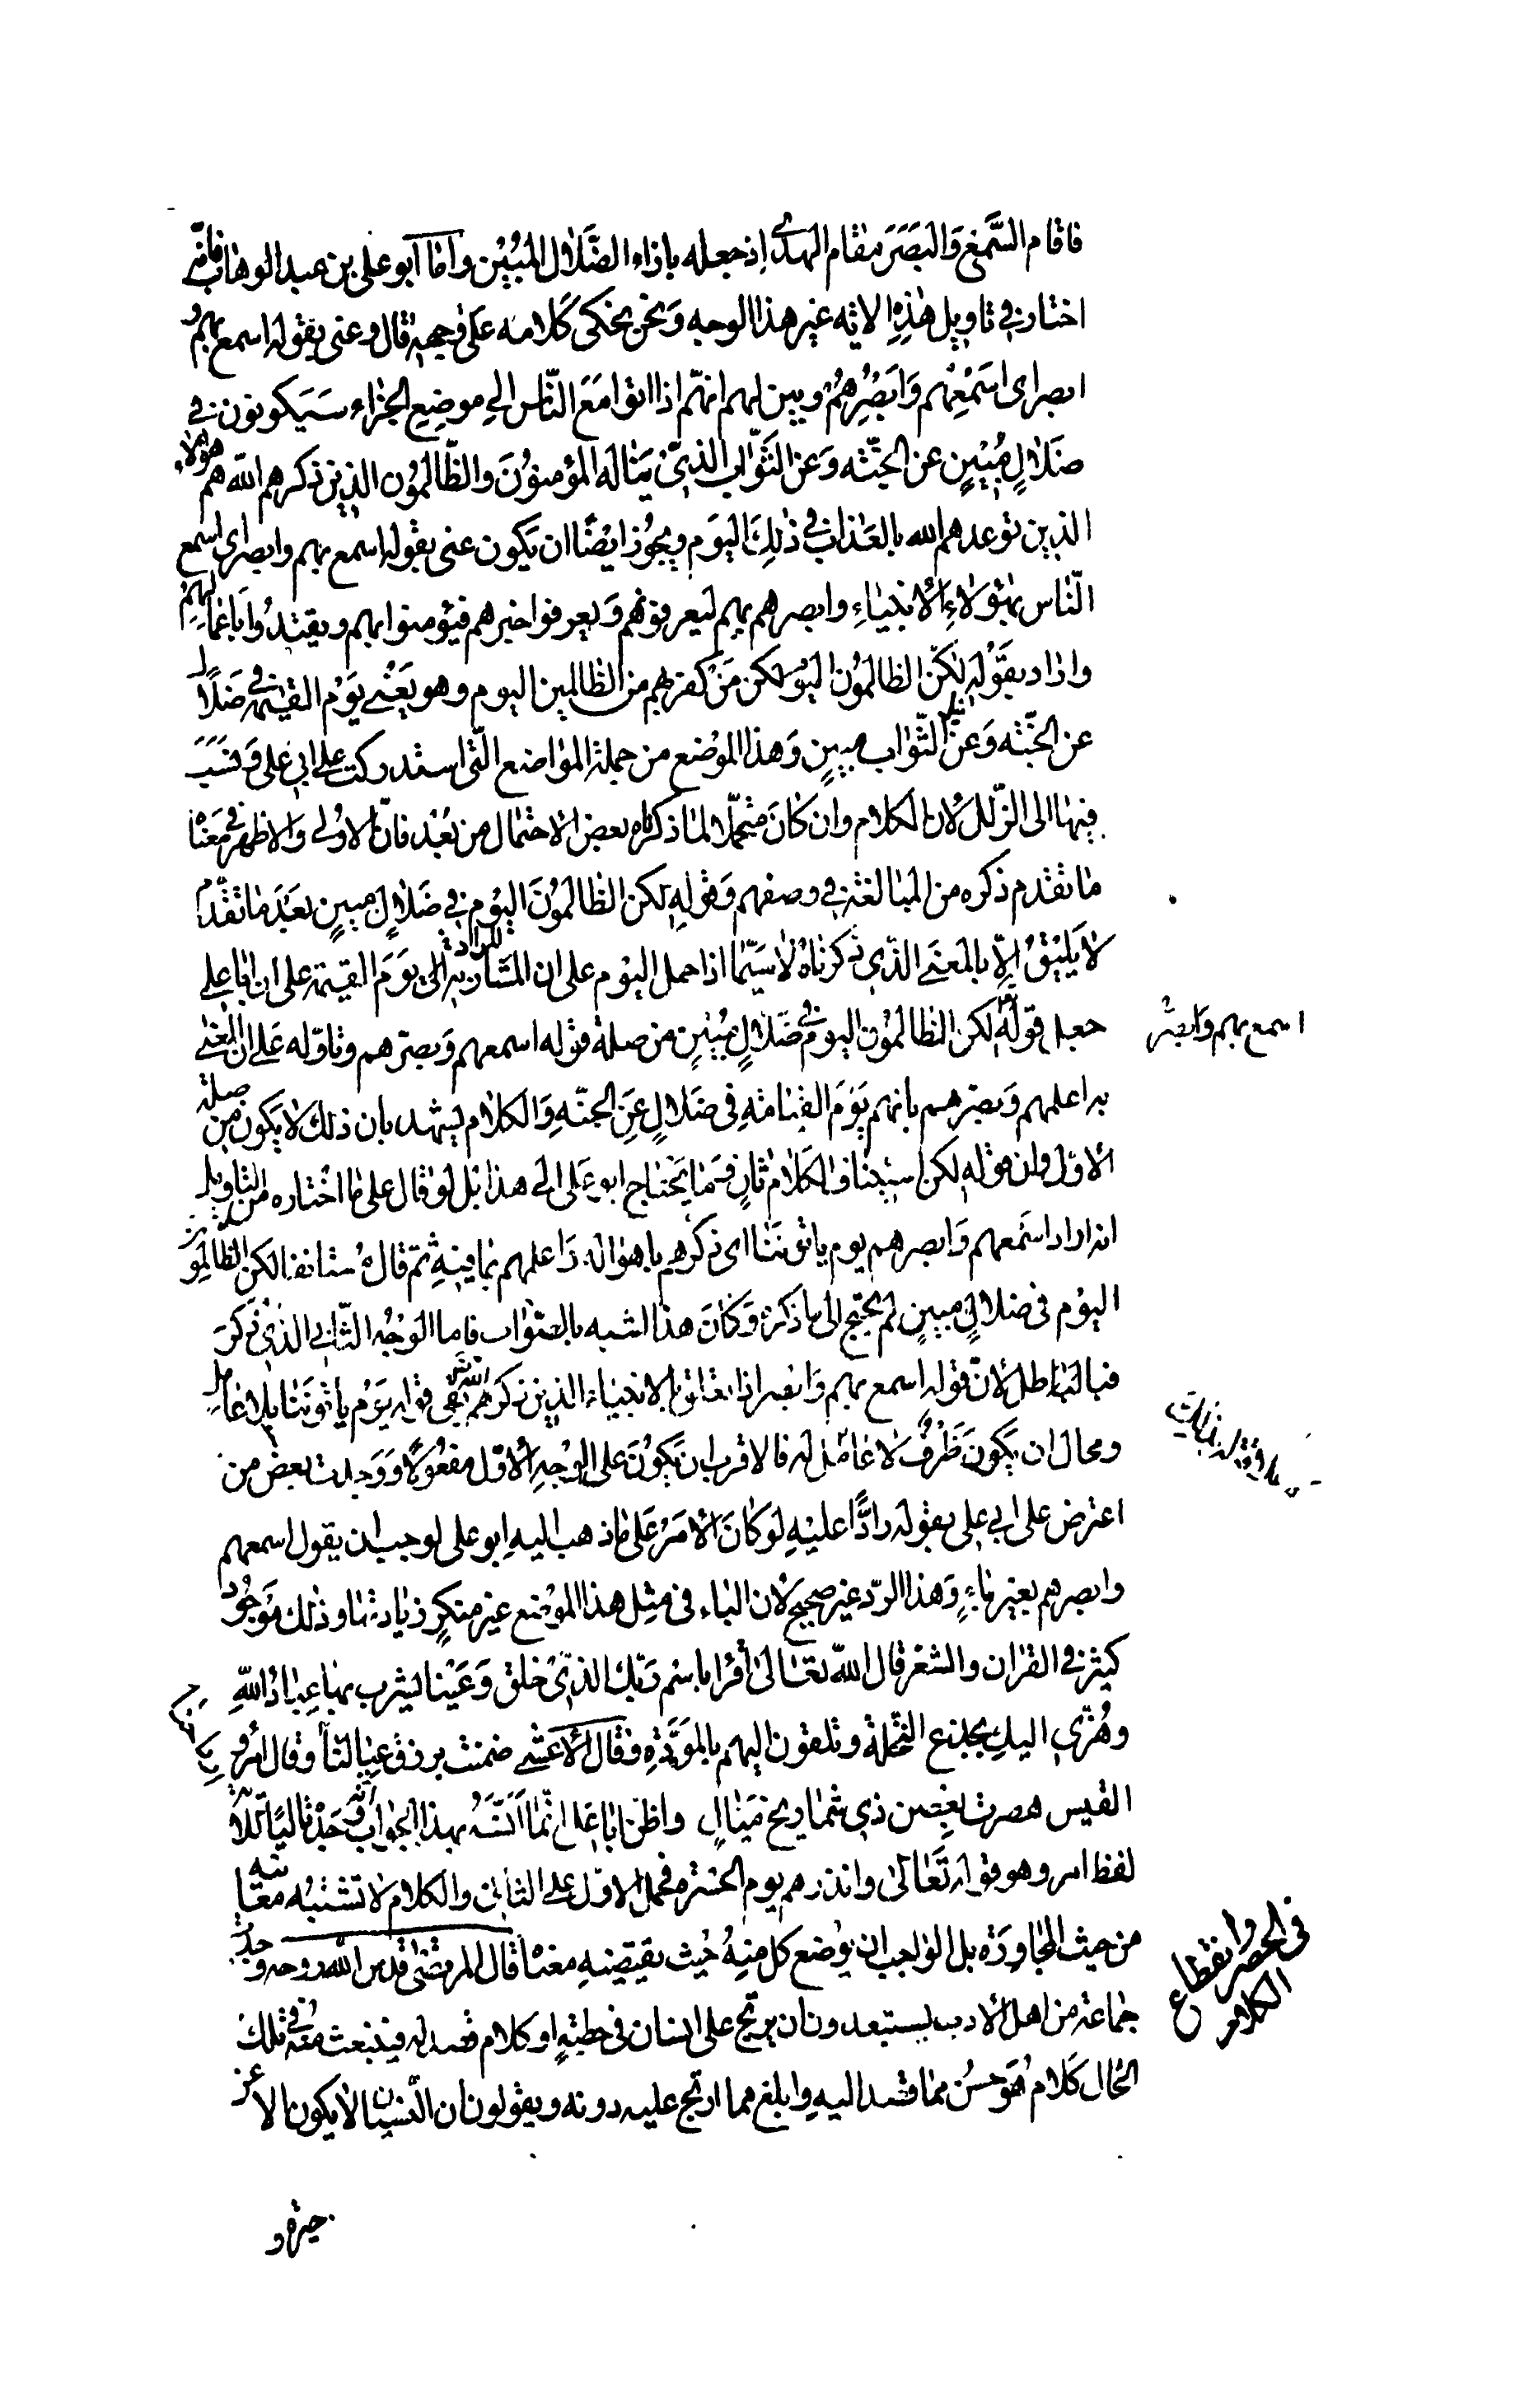 فاقام السَّمع وَالبَصَرَ مقام الهدى إذ جعله بازاء الضَّلال المبُين وامّا ابو على بن عبد الوهاب فانّه
اختار في تاويل هٰذِهِ الاية غير هذا الوجه وَنحن نحكى كَلامه عَلى وَجهه قال وعنى بقوله اسمع بهم و
ابصر اى اسَمعِهم وَابَصُرِهُم وبين لهم انهّم اذا اتوا مَعَ النّاس الى موضِع الجزاء سَيَكونون فى
ضَلالٍ مُبينٍ عن الجنّة وَعن الثَّوٰاب الذى يَنٰاله المؤمنوُنَ والظّالمَوُن الذين ذكرهم اللّه هم هؤلاء
الذين توعدهم الله بالعَذاب في ذٰلِكَ اليَوم ويجوُز ايضًا ان يَكون عنى بقوله اسمع بهم وابصر اى اسمع
النّاس بهٰؤلاءِ الأنبياءِ وابصرهم بهم ليَعرفوهم وَيعرفوا خبرهم فيؤمنوا بهم ويقتدُوا باعَمالهم
واراد بقَوُله لكنّ الظالمَوُن اليَوْم لكن مَنْ كفر بهم من الظالمين اليوم وهو يَعْنى يَوْم القيٰمة فى ضَلاٰل
عن الجَنّة وَعن نيل الثّوٰاب مبينٍ وَهذا الموْضع من جملة الموٰاضع الّتى استدركت على ابى على وَنسَبَ
فيهٰا الى الزّلل لأن الكلام وان كٰانَ متحمّلا لما ذكرٰه بعض الاحتمال من بُعْد فانّ الاولى والاظهر فى مَعَنٰاه
مٰا تقدم ذكره من المبالغة فى وصفهم وَقولهِ لكن الظٰالمَوُنَ اليَوْم فى ضَلٰالٍ مبينٍ بعَدَ مٰا تقدّم
لاٰ يَليْقُ إلّا بالمعَنى الذّى ذكرنٰاهُ لاٰ سيّمٰا اذا حمل اليوم على ان المراد به المشَار به الى يَوَمَ القيٰمة على ان ابٰا على
جعل قوَلهُ لكن الظالموُن اليوم فى ضَلٰالٍ مُبْينٍ من صلة قوله اسمعهم وَبصّرهم وتاوّله عَلى ان المعْنٰى
به اعلمهم وَبصّرهم بانهم يَوَمَ القيٰامة فى ضَلالٍ عَنِ الجنّةِ وَالكلاٰم يشهد بان ذلك لا يَكون من صلة
الأوّل وان قوله لكن استينٰاف لكَلاٰم ثانٍ وَمٰا يَحتاج ابو عَلى الى هذا بَل لَو قال على مٰا اخْتاره من التاويل
انه اراد اسَمعهم وَابصرهم يوم ياتونَنٰا اى ذكّرهم باهوٰاله وَاعلمهم بمٰا فيهِ ثمّ قال مُستٰانفا لكن الظّالموُن
اليَوْم فى ضلالٍ مبينٍ لم يحتج الى مٰا ذكرَهُ وَكٰانَ هذا اشبه بالصّوٰاب فاما الوَجُه الثّانى الذْى ذَكرَ
فبٰاطل لأنّ قوله اسمع بهم وَابصر اذا تعَلق بالأنبيٰاء الذين ذكرَهُم اللّه تعٰالى بقى قوله يَوْمَ ياتُونَنٰا بلا عٰامل
ومحال ان يكَون ظَرْفٌ لاٰ عٰامَل له فالاقرب ان يَكوُنَ على الوْجهِ الأوّل مفعُولاً وَوَجدت بعض من
اعترض على ابى على بقوله رادًّا عليْهِ لَو كٰانَ الأمَرُ عَلى مٰا ذهب اليهِ ابو على لوجب ان يقول اسمعهم
وابصرهم بغير بٰاءٍ وَهذا الردّ غير صحيح لأن البٰاء فى مثِل هذا الموْضع غير منكرٍ زيٰادتهٰا وذٰلك مَوجُود
كثير فى القراٰن والشعر قال اللّه تعَالىٰ اقرأ باسْم رَبّك الذّى خلق وَعَيْنا يشرب بهٰا عِبٰادُ اللّهِ
وهُزّى اليكِ بجذع النّخلة وتلقون اليهم بالموَدّةِ وقال الأعَشى ضمنت برزق عيالنٰا وقال امرؤ
القيس هصرت بغصن ذى شمٰاريخ ميّٰالٍ واظن ابٰا عَلى انّمٰا انسَهُ بهذا الجوٰاب انّه وَجَدَ تاليًا للاٰية
لفظ امر وهو قوله تَعٰالىٰ وانذرهم يوم الحَسْرة فحمل الاوّل على الثٰانى والكلاٰم لاٰ تشتبه معٰانيه
من حيث المجٰاورَة بل الوٰاجب ان يوُضع كل منهُ حيْث يقتضيهِ معنٰاه قٰال المرتضىٰ قدس اللّه روحه وَجدت
جماعة من اهل الأدب يستبعدون ان يرتج على انسان فى خطبةٍ او كلام قصد له فينبعث منه فى تلك
الحٰال كَلاٰم هُوَ احسُن مما قصد اليهِ وابلغ مما ارتج عليه دونه ويقولون ان النّسيان لاٰ يكون الا عن
حيرة و
اسمع بهم وابصر
فى الحصر وانقطاع
الكلام